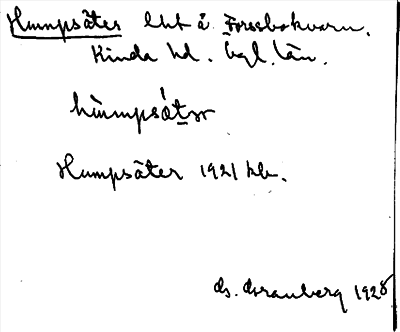 Humpsäter lht å Forssbokvarn.
Kinda hd. Ögl. län.
hùmpsǽtər
Humpsäter 1921 kb.
G. Granberg 1928